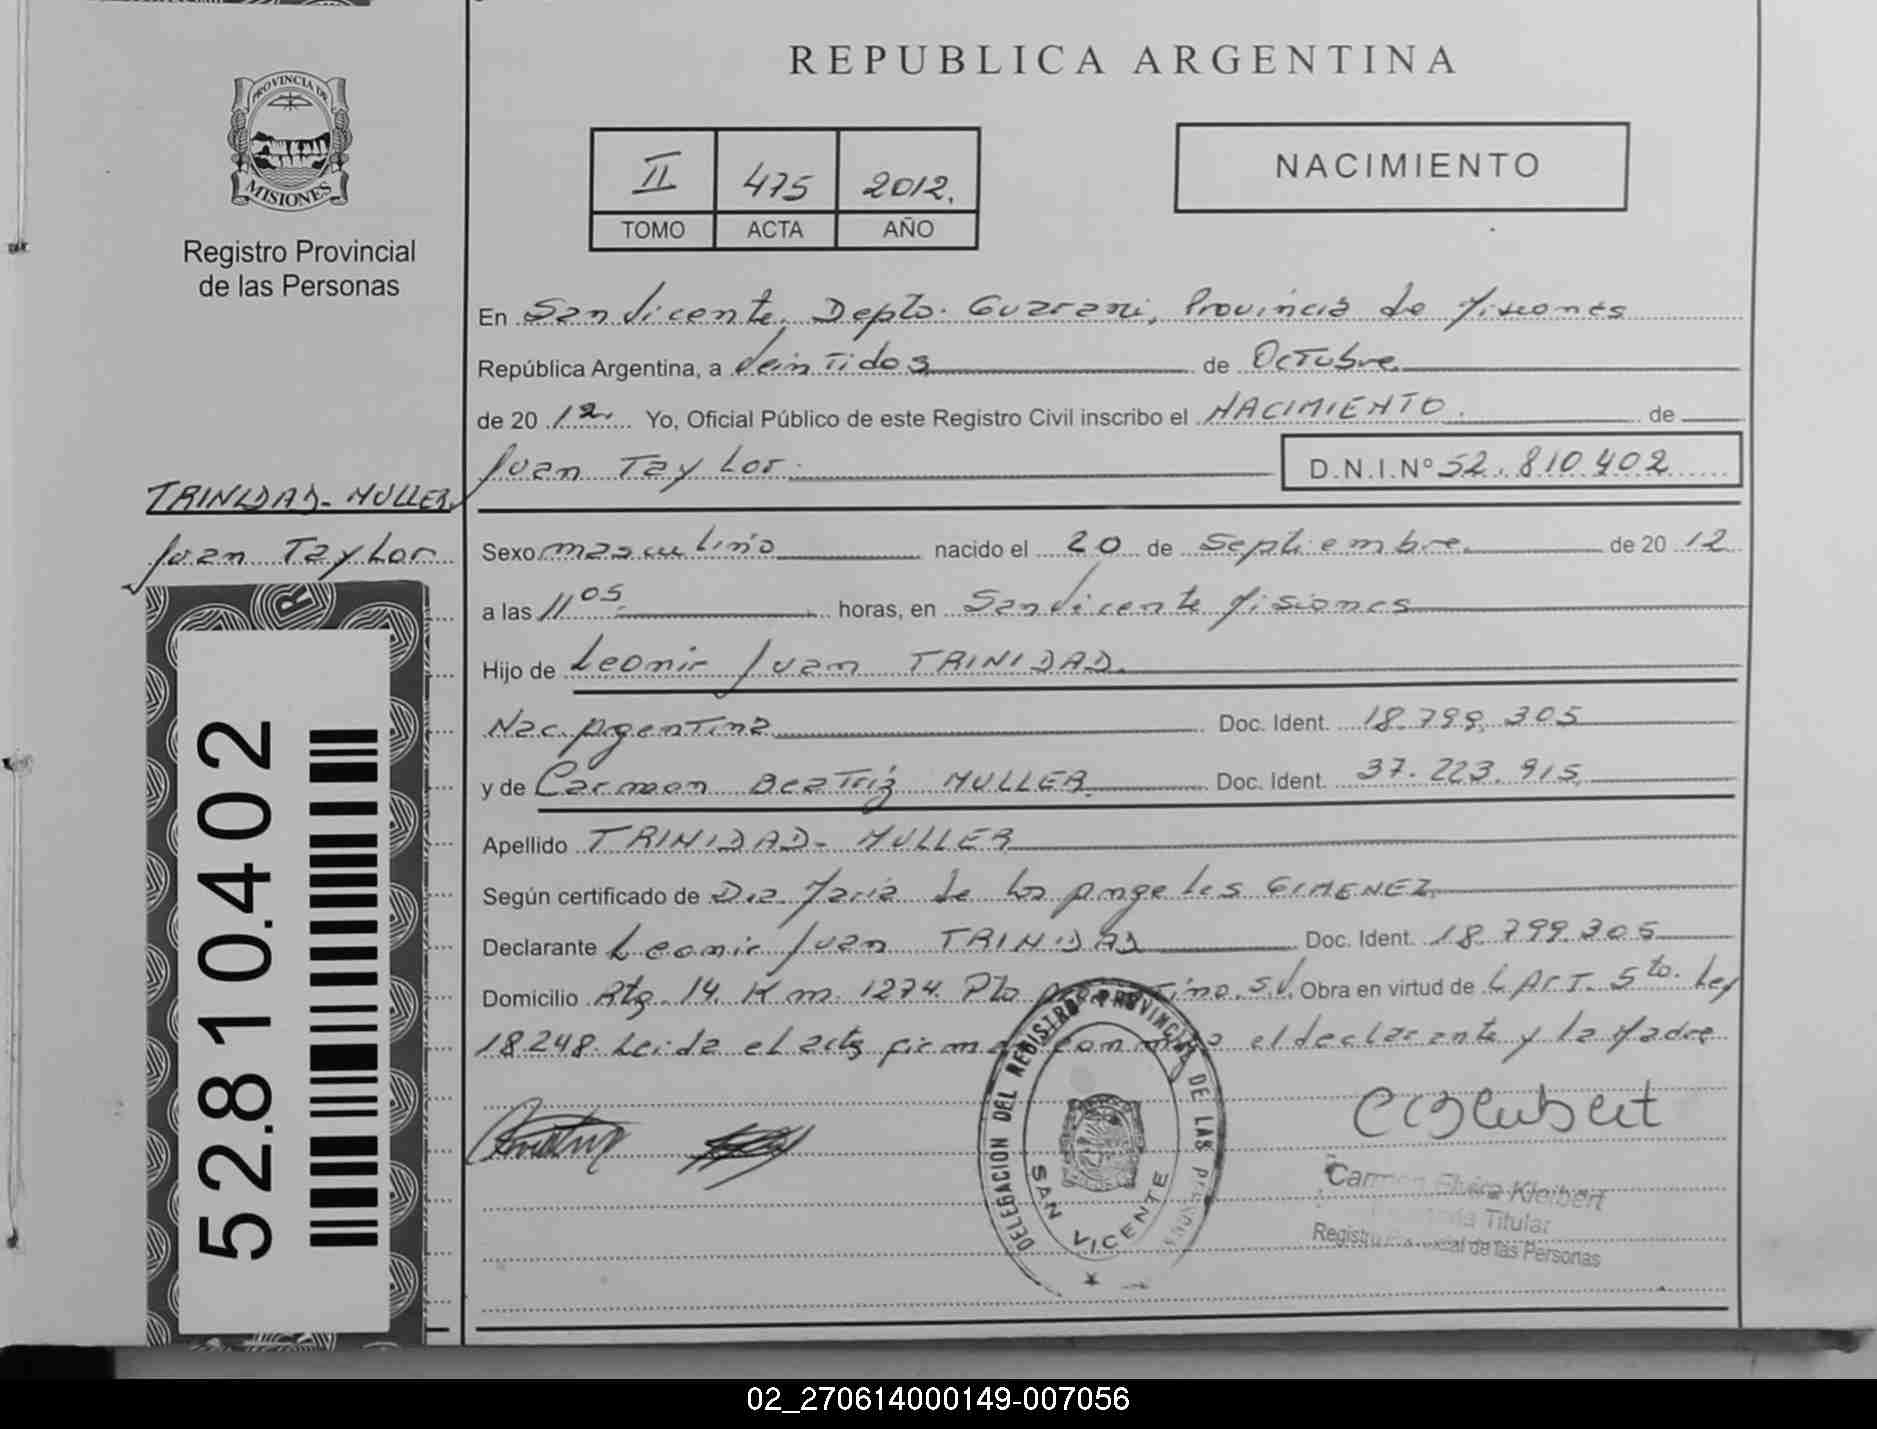 REPUBLICA ARGENTINA
PROVINCIA DE
MISIONES
Registro Provincial
de las Personas
II 475 2012.
TOMO ACTA AÑO
NACIMIENTO
En San Vicente, Depto. Guarani, Provincia de Misiones
República Argentina, a Veintidos de Octubre
de 20 12. Yo, Oficial Público de este Registro Civil inscribo el NACIMIENTO. de
Juan Taylor. D.N.I.Nº 52.810.402
TRINIDAD-MULLER
Juan Taylor
Sexo masculino nacido el 20 de Septiembre de 20 12
a las 11 05 horas, en San Vicente Misiones
Hijo de Leonir Juan TRINIDAD.
Nac. Argentina Doc. Ident. 18.799.305
y de Carmen Beatriz MULLER Doc. Ident. 37.223.915
Apellido TRINIDAD-MULLER
Según certificado de Dra Maria de los Angeles GIMENEZ
Declarante Leonir Juan TRINIDAD Doc. Ident. 18.799.305
Domicilio Rta. 14. Km. 1274. Pto Argentino. S.V. Obra en virtud de L Art. 5to. Ley
18.248. Leida el acta firman conmigo el declarante y la Madre
52.810.402
DELEGACION DEL REGISTRO PROVINCIAL DE LAS PERSONAS
SAN VICENTE
Carmen Elvira Kleibert
Titular
Registro Provincial de las Personas
02_270614000149-007056